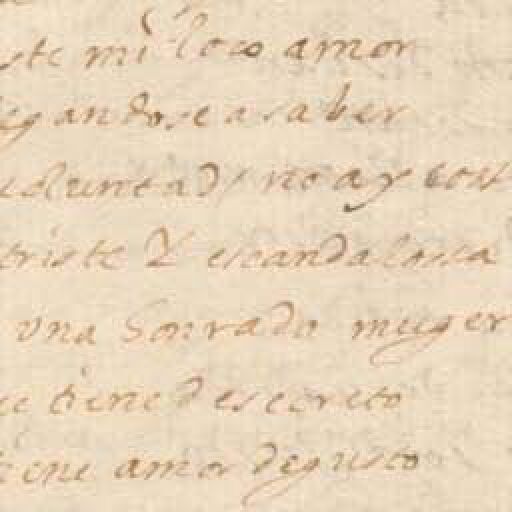 ste mi loco amor
egandose a saber
voluntad, no ay cossa
triste y escandalossa
una honrada muger
ue tiene de secreto
iene amor de gusto